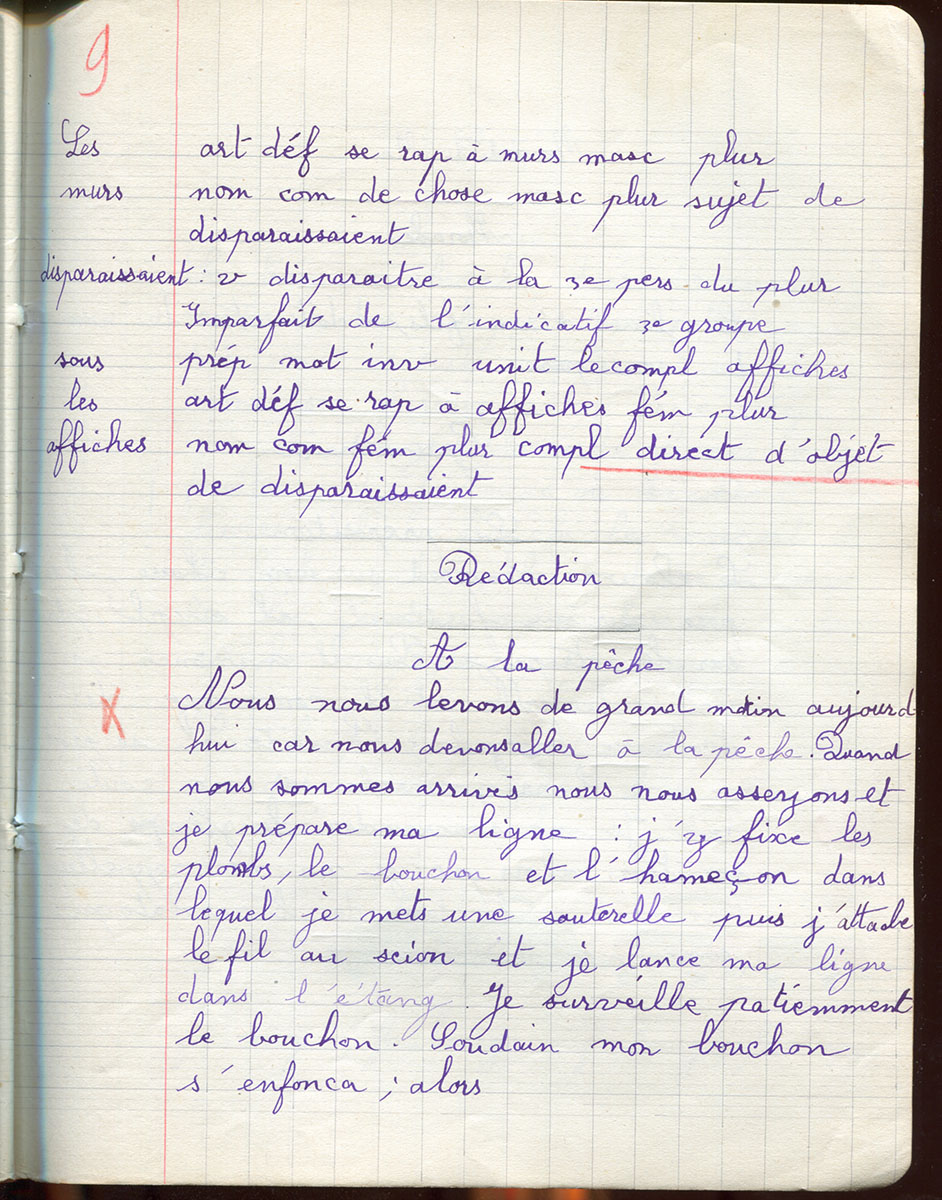 9
Les art déf se rap à murs masc plur
murs nom com de chose masc plur sujet de
disparaissaient
disparaissaient : v disparaitre à la 3e pers du plur
Imparfait de l'indicatif 3e groupe
sous prép mot inv unit le compl affiches
les art déf se rap à affiches fém plur
affiches nom com fém plur compl direct d'objet
de disparaissaient
Rédaction
A la pêche
X Nous nous levons de grand matin aujourd
hui car nous devons aller à la pêche. Quand
nous sommes arrivés nous nous asseyons et
je prépare ma ligne : j'y fixe les
plombs, le bouchon et l'hameçon dans
lequel je mets une sauterelle puis j'attache
le fil au scion et je lance ma ligne
dans l'étang. Je surveille patiemment
le bouchon. Soudain mon bouchon
s'enfonca ; alors